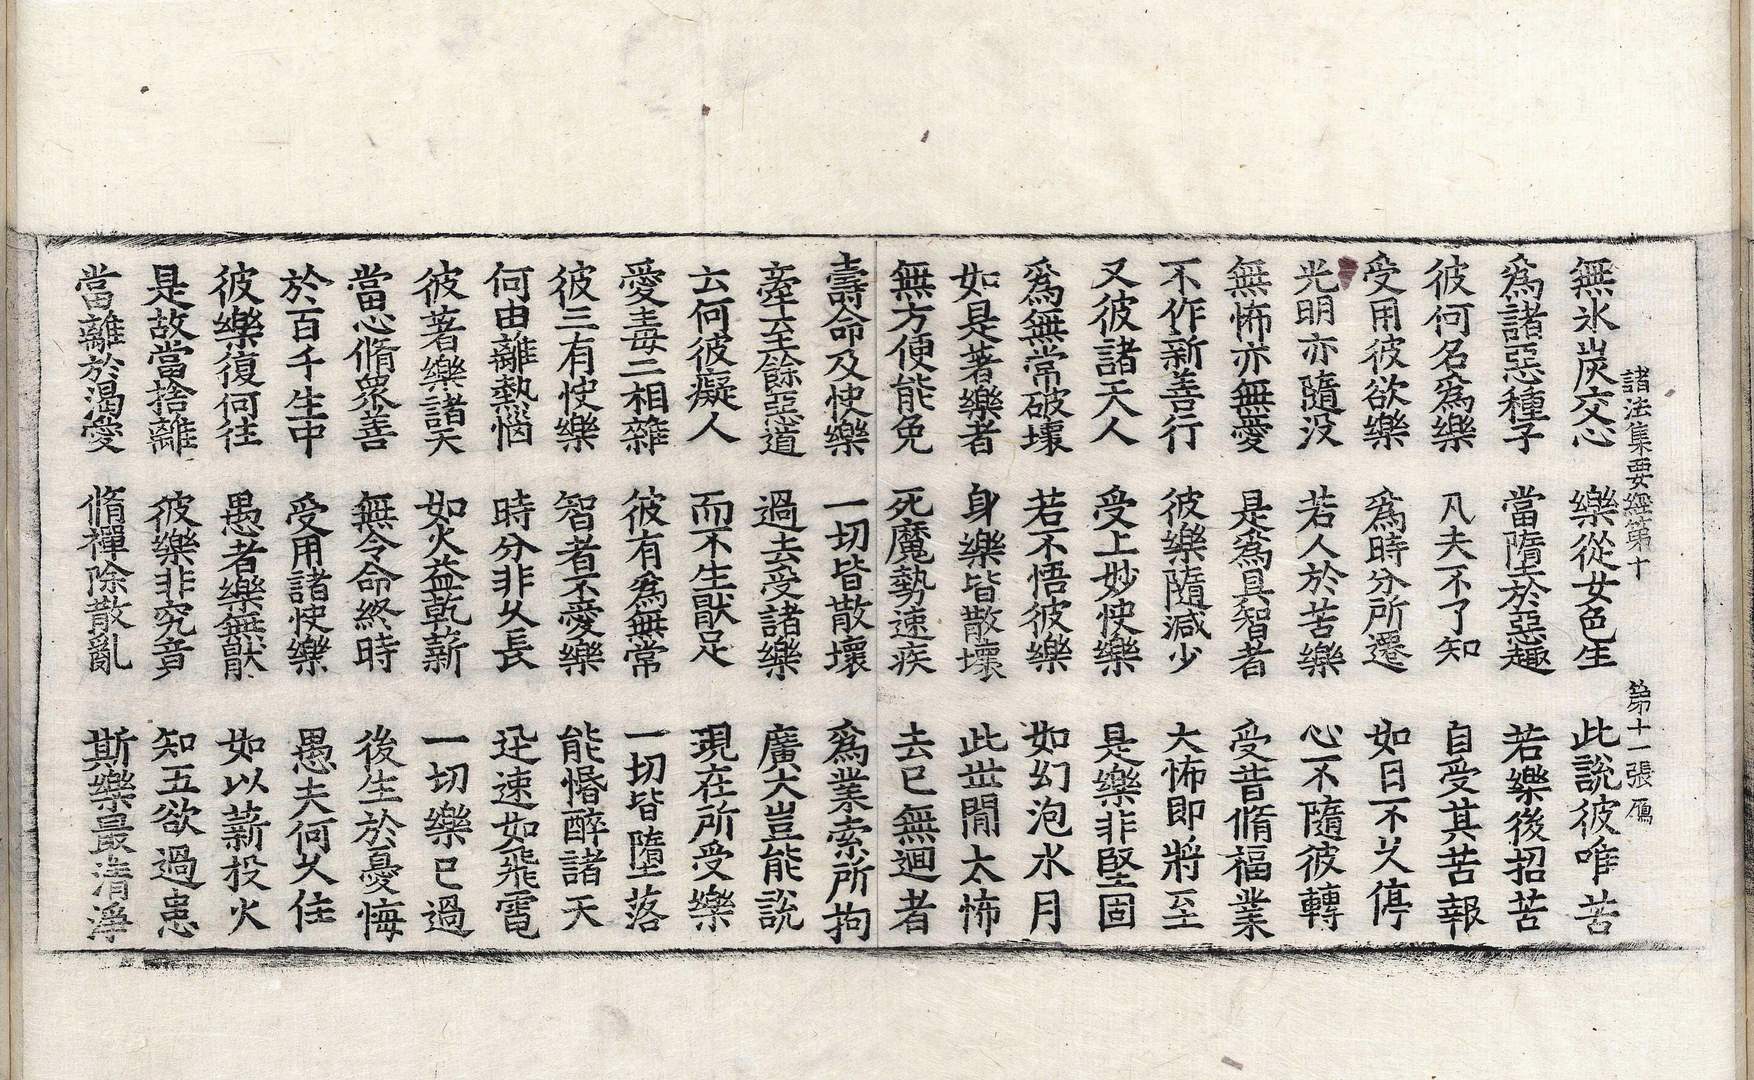 諸法集要經第十　第十一張　鴈
無氷炭交心　樂從女色生　此說彼唯苦
爲諸惡種子　當墮於惡趣　若樂後招苦
彼何名爲樂　凡夫不了知　自受其苦報
受用彼欲樂　爲時分所遷　如日不久停
光明亦隨没　若人於苦樂　心不隨彼轉
無怖亦無愛　是爲具智者　受昔脩福業
不作新善行　彼樂隨減少　大怖即將至
又彼諸天人　受上妙快樂　是樂非堅固
爲無常破壞　若不悟彼樂　如幻泡水月
如是著樂者　身樂皆散壞　此世閒太怖
無方便能免　死魔勢速疾　去已無迴者
壽命及快樂　一切皆散壞　爲業索所拘
牽至餘惡道　過去受諸樂　廣大豈能說
云何彼癡人　而不生猒足　現在所受樂
愛毒二相雜　彼有爲無常　一切皆墮落
彼三有快樂　智者不愛樂　能惛醉諸天
何由離熱惱　時分非久長　迅速如飛電
彼著樂諸天　如火益乾薪　一切樂已過
當思脩衆善　無令命終時　後生於憂悔
於百千生中　受用諸快樂　愚夫何久住
彼樂復何往　愚者樂無猒　如以薪投火
是故當捨離　彼樂非究竟　知五欲過患
當離於渴愛　脩禪除散亂　斯樂最清淨